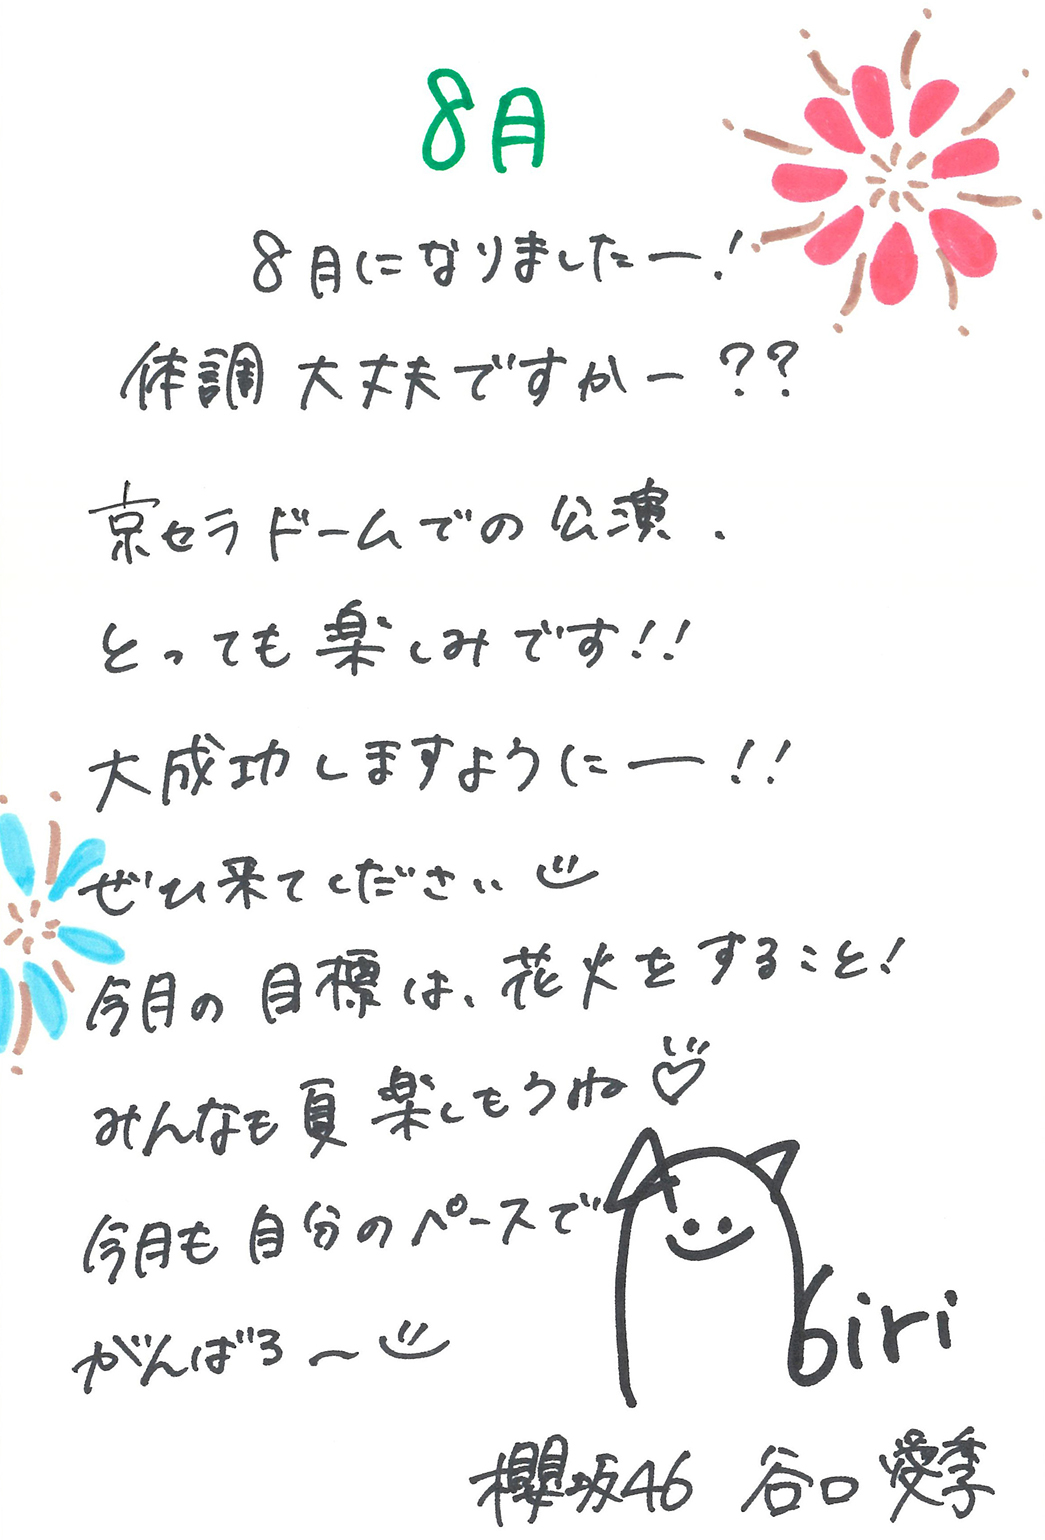 8月
8月になりましたー!
体調大丈夫ですかー??
京セラドームでの公演.
とっても楽しみです!!
大成功しますようにー!!
ぜひ来てください
今月の目標は、花火をすること!
みんなも夏楽しもうね♡
今月も自分のペースで
がんばろ〜
biri
櫻坂46 谷口愛季